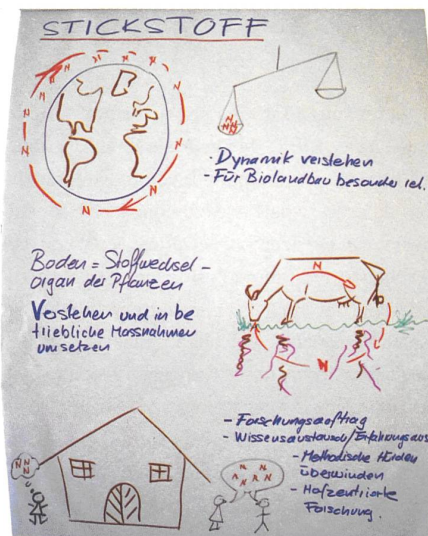 STICKSTOFF
N N N N N N N N
N N N N
· Dynamik verstehen
- Für Biolandbau besonder rel.
Boden = Stoffwechsel-
organ der Pflanzen
Verstehen und in be
triebliche Massnahmen
umsetzen
N
N
- Forschungsauftrag
- Wissensaustausch/Erfahrungsaus
- Methodische Hürden
überwinden
- Hofzentrierte
Forschung.
N N N
N N N N N